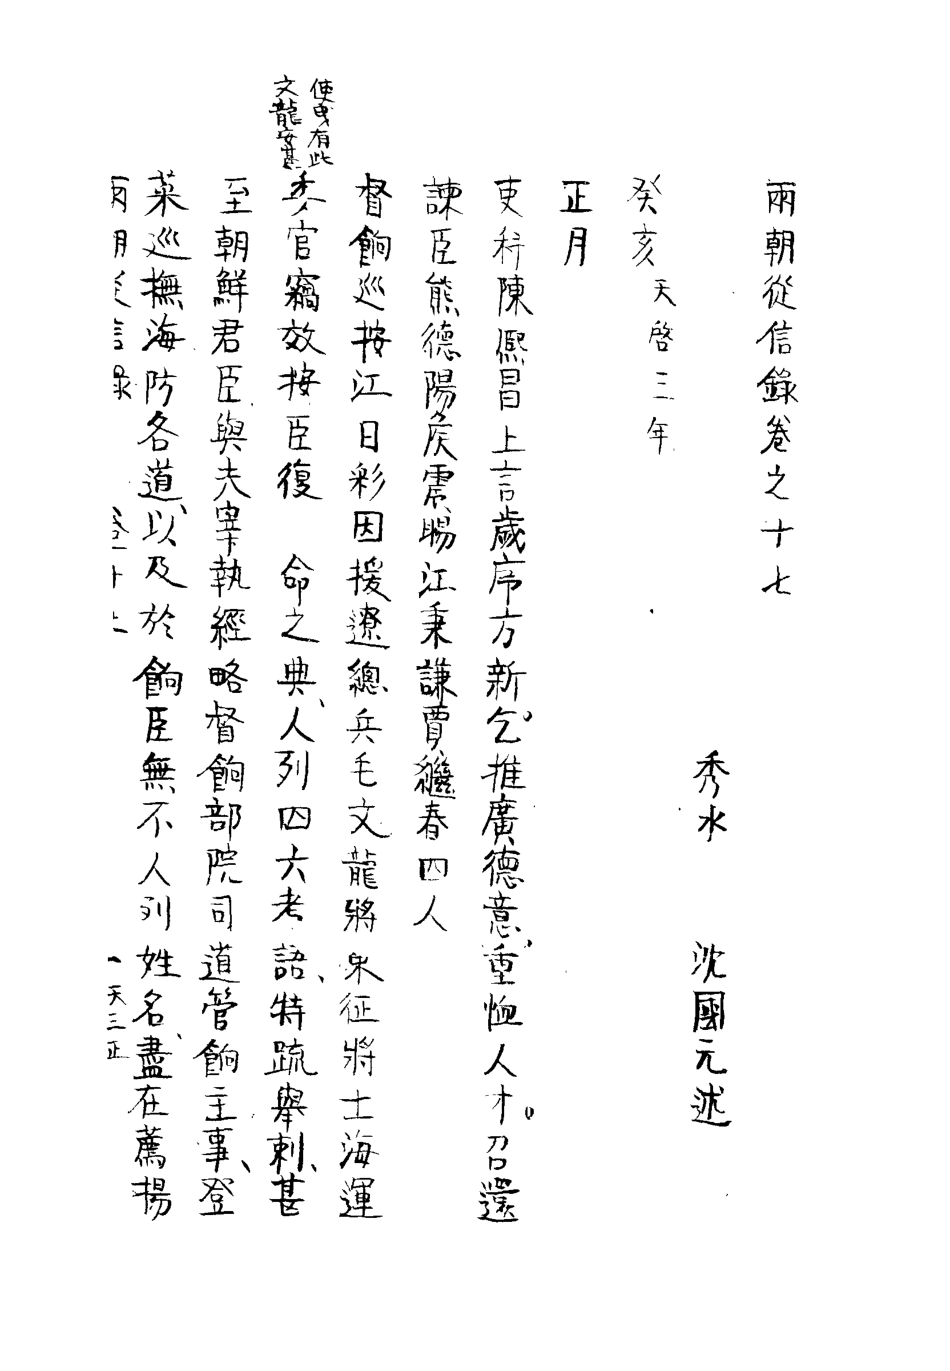 兩朝從信錄卷之十七
秀水 沈國元述
癸亥 天啓三年
正月
吏科陳熈昌上言歲序方新。乞推廣德意、重恤人才。召還
諫臣熊德陽侯震暘江秉謙賈繼春四人
督餉巡按江日彩因援遼總兵毛文龍將朱征將士海運
委官竊效按臣復 命之典、人列四六考語、特疏舉刺、甚
使曳有此
文龍安甚
至朝鮮君臣與夫宰執經略督餉部院司道管餉主事、登
萊巡撫海防各道、以及於餉臣無不人列姓名、盡在薦揚
兩朝從信錄 卷十七 一 天三正